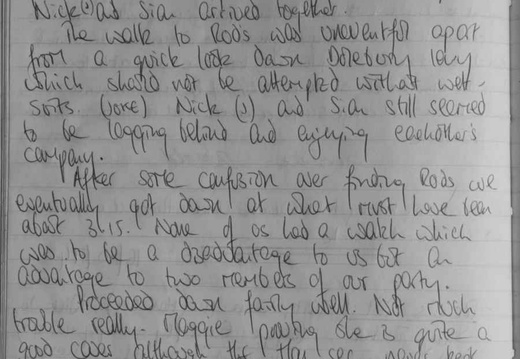 Nick (1) and Sian arrived together.
The walk to Rods was uneventful apart
from a quick look down Dolebury levy
which should not be attempted without wet-
suits. (joke) Nick (1) and Sian still seemed
to be lagging behind and enjoying eachother's
company.
After some confusion over finding Rods we
eventually got down at what must have been
about 3.15. None of us had a watch which
was to be a disadvantage to us but an
advantage to two members of our party.
Proceeded down fairly well. Not much
trouble really. Maggie proving she is quite a
good caver although the